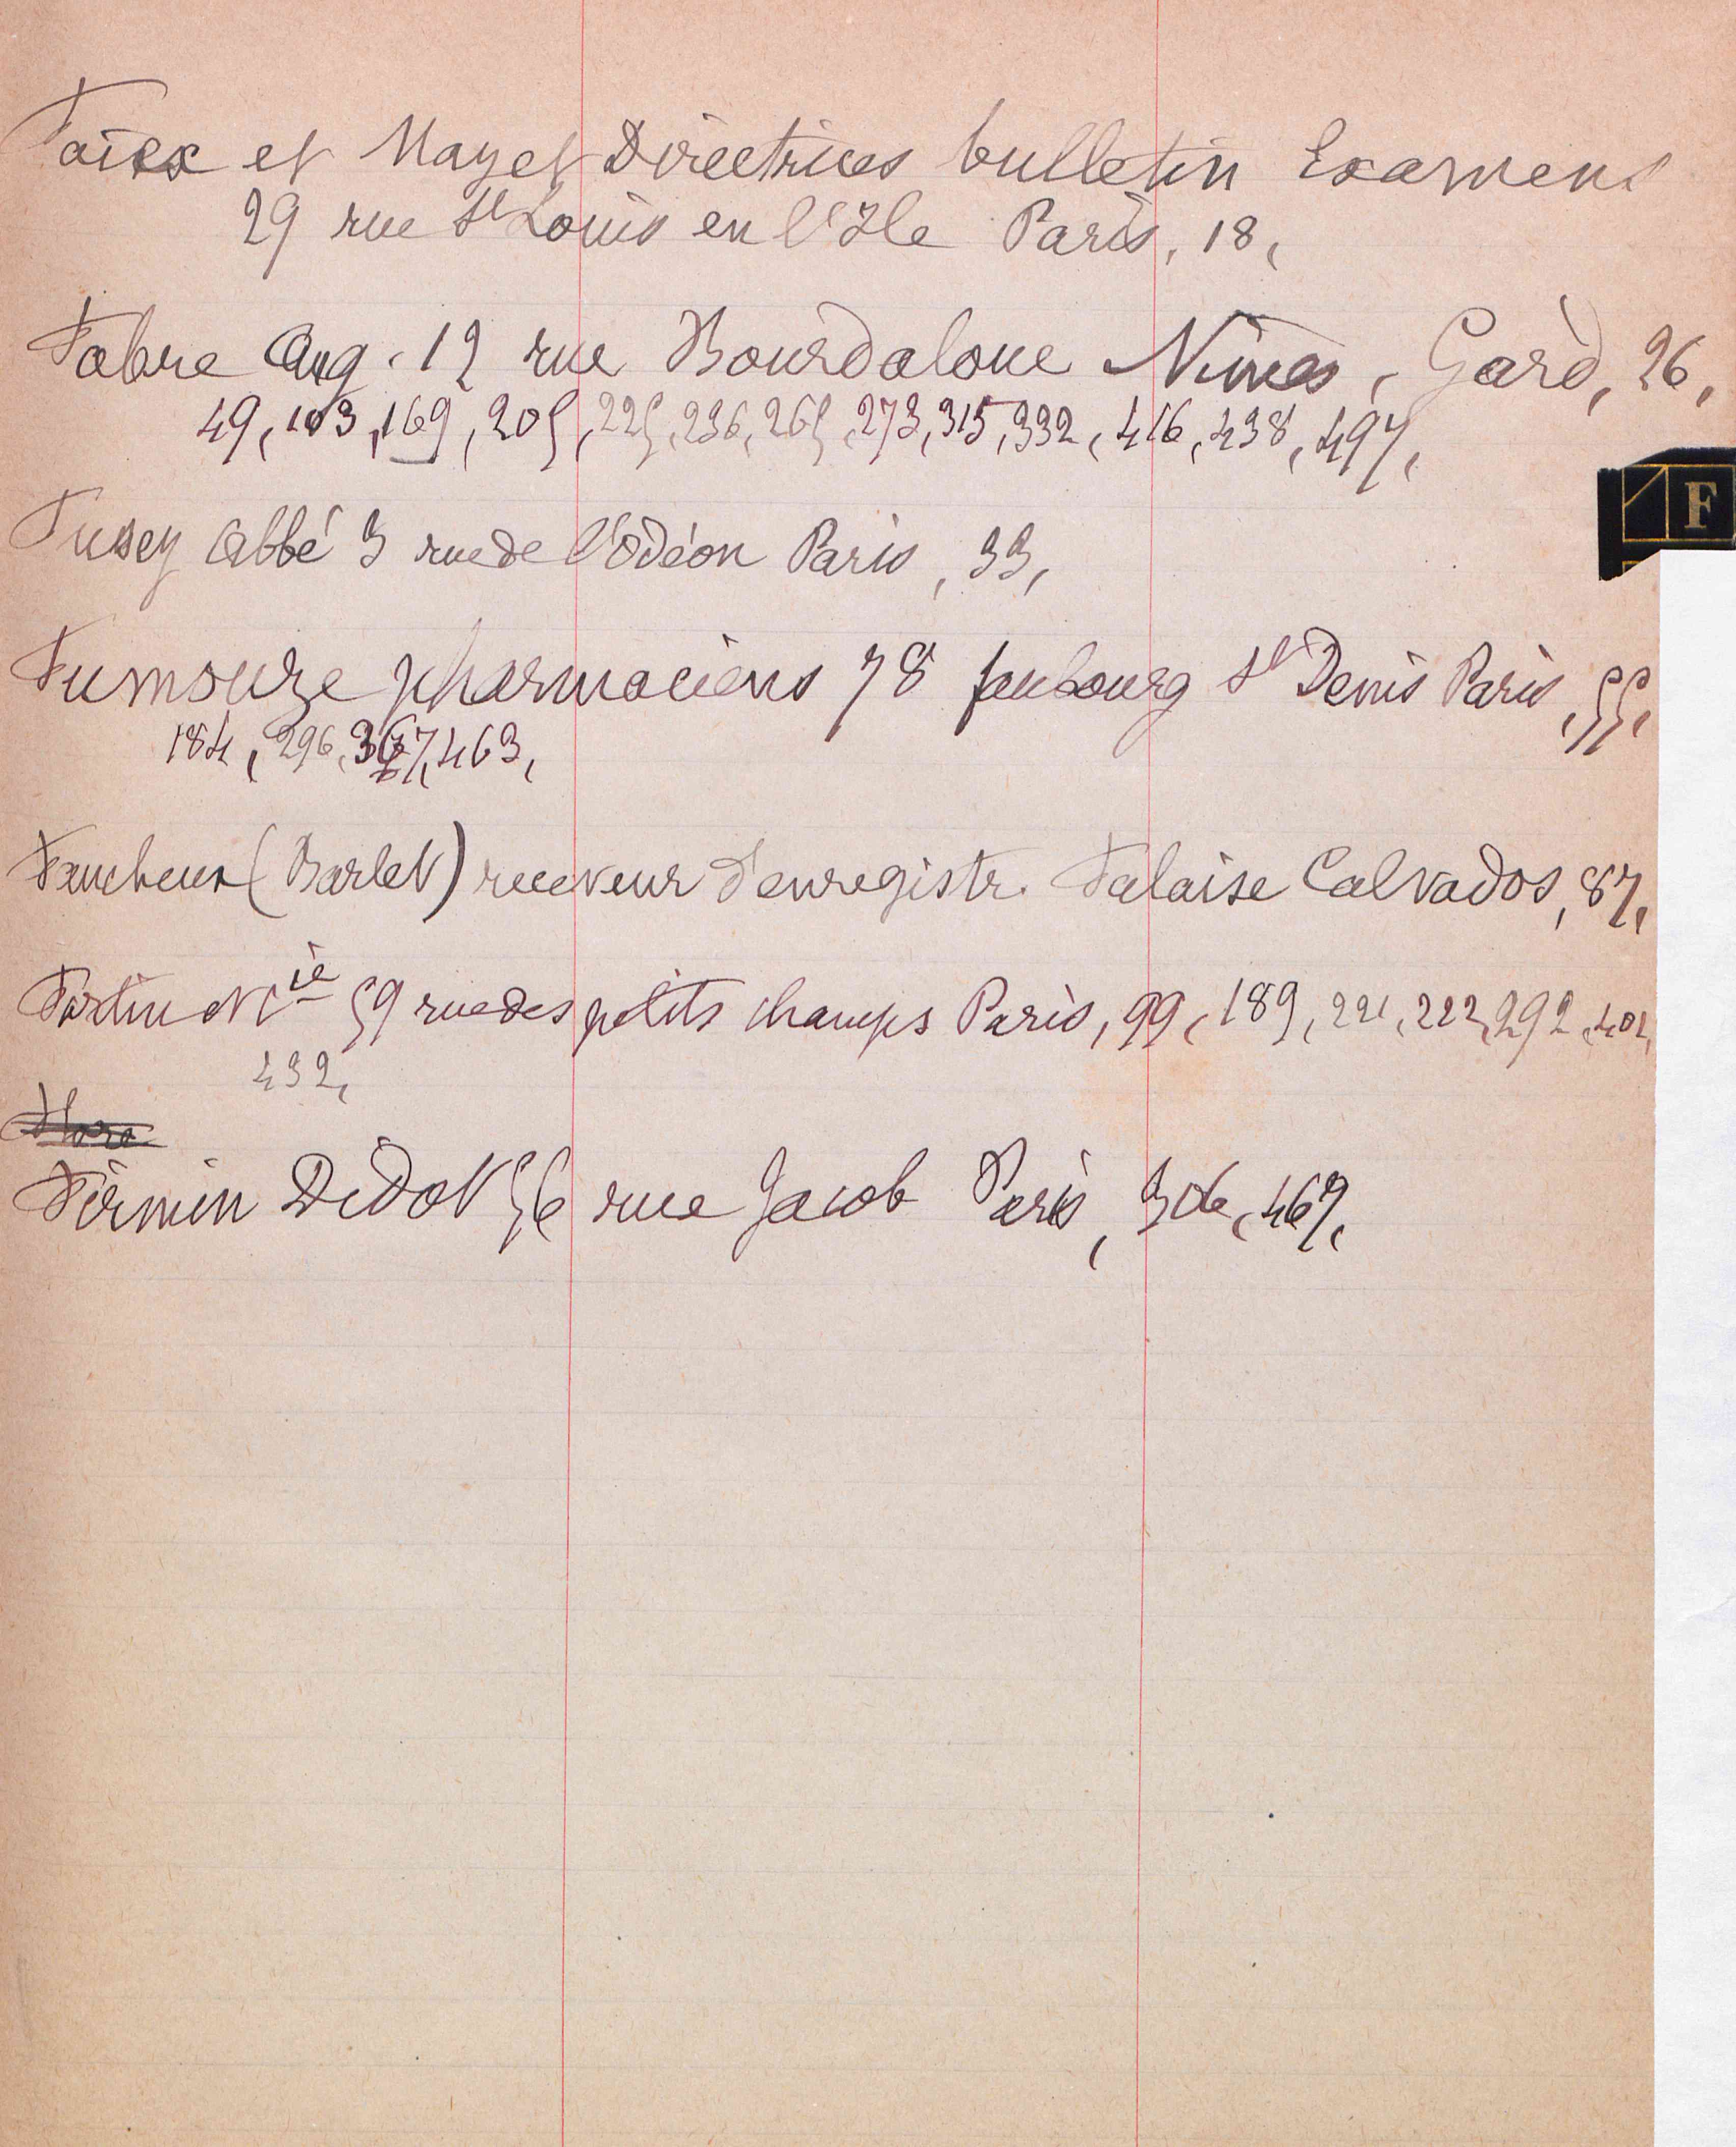 et Mayet Directrices bulletin Examens
29 rue St Louis en l'Ile Paris, 18,
Fabre Aug. 12 rue Bourdaloue Nîmes, Gard, 26,
49, 103, 169, 205, 225, 236, 265, 273, 315, 332, 416, 438, 497,
F
Fusey abbé 3 rue de l'odéon Paris, 33,
Fumouze pharmaciens 78 faubourg St Denis Paris, 55,
184, 296, 367, 463,
Faucheux (Barlet) receveur d'enregistr. Falaise Calvados, 87,
Fortin & Cie 59 rue des petits champs Paris, 99, 189, 221, 222, 292, 401,
432,
Firmin Didot 56 rue Jacob Paris, 306, 467,